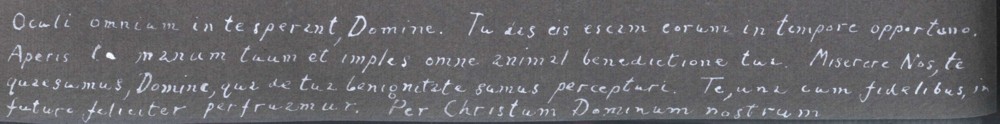 Oculi omnium in te sperant, Domine. Tu dis eis escam eorum in tempore opportuno.
Aperis manum tuum et imples omne animal benedictione tua. Miserere Nos, te
quaesumus, Domine, qua de tua benignitate sumus percepturi. Te, una cum fidelibus, in
future feliciter perfruamur. Per Christum Dominum nostrum